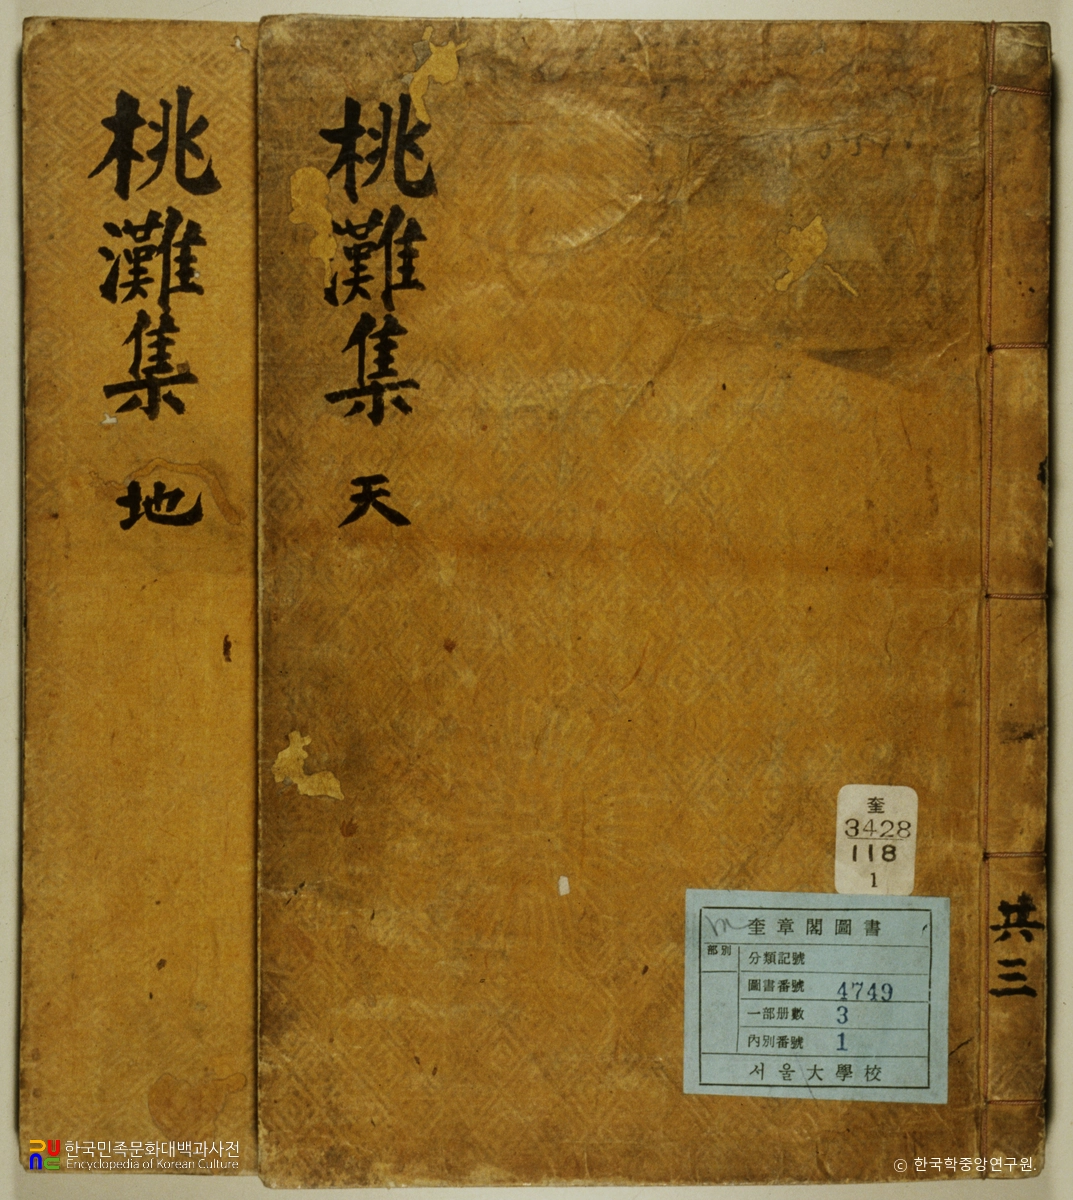 桃灘集 地
桃灘集 天
共三
奎
3428
118
1
奎章閣圖書
部別
分類記號
圖書番號 4749
一部册數 3
內別番號 1
서울大學校
한국민족문화대백과사전
Encyclopedia of Korean Culture
ⓒ 한국학중앙연구원.